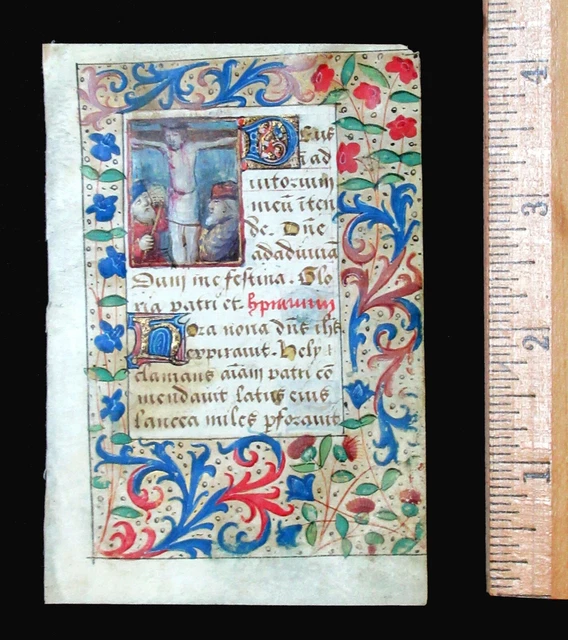 Deus
ī ad
iutorium
meū īten
de. Dn̄e
adadiuuā
dum me festina. Glo
ria patri et. hymnus
Hora nona dn̄s ihs
expirauit. Hely
clamans aīam patri cō
mendauit latus eius
lancea miles pforauit
4
3
2
1